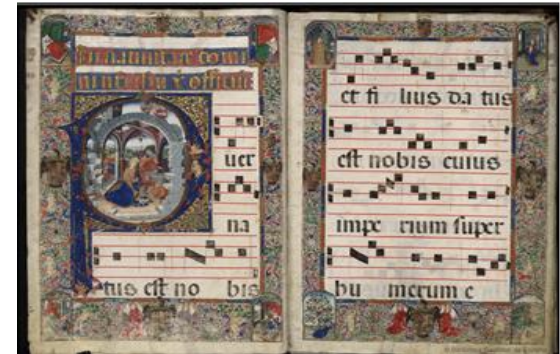 P
uer
na
tus est no bis
et fi lius da tus
est nobis cuius
impe rium super
hu merum e